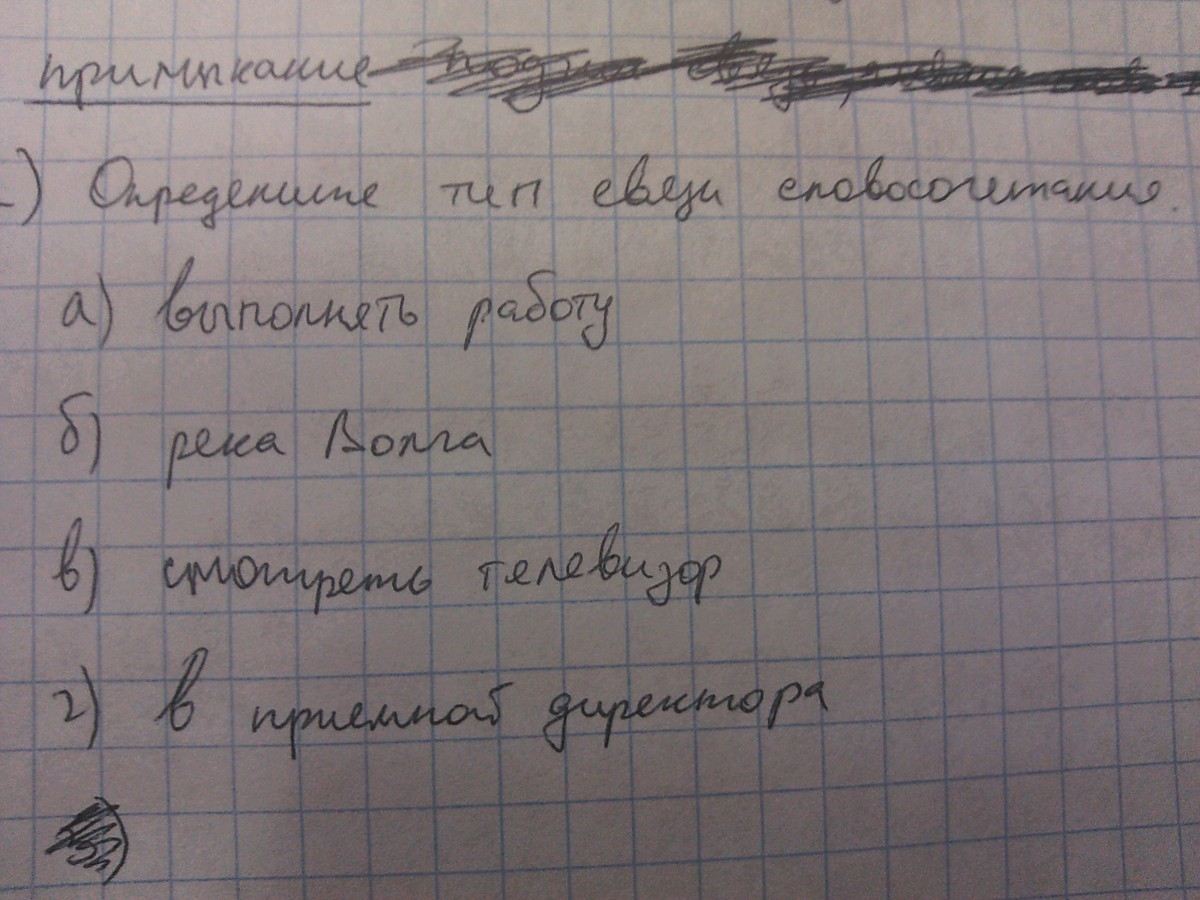 примыкание
) Определите тип связи словосочетания.
а) выполнять работу
б) река Волга
в) смотреть телевизор
г) в приемной директора